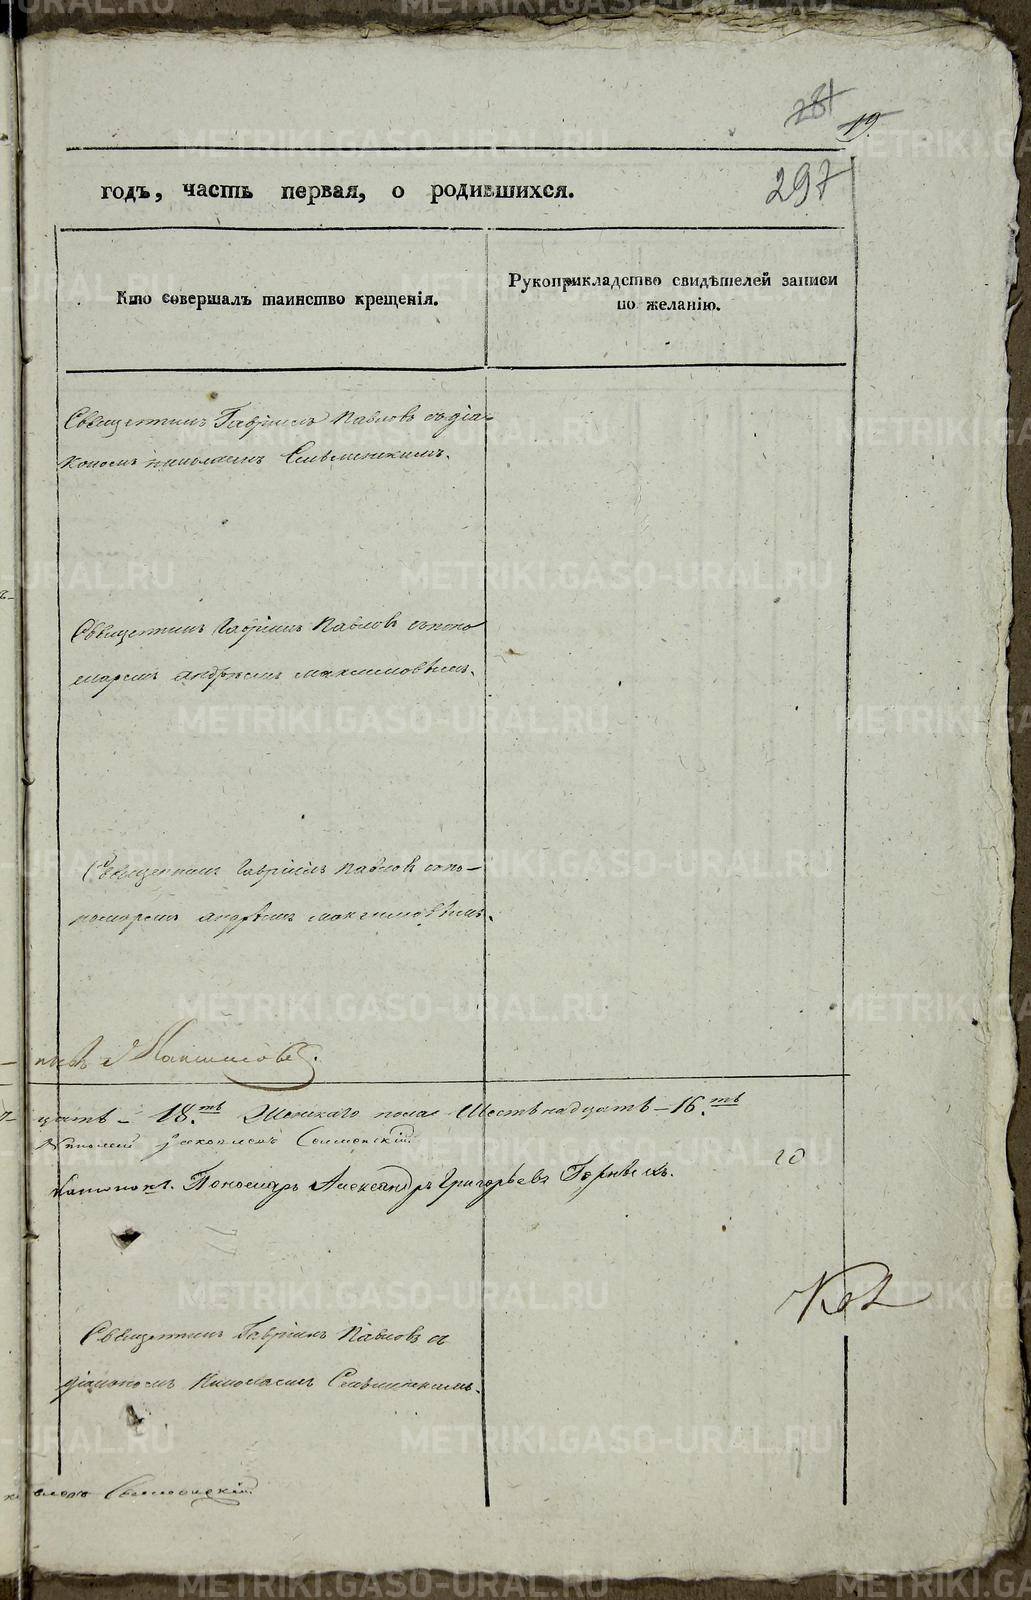 281
19
297
годъ, часть первая, о родившихся.
Кто совершалъ таинство крещенія.
Рукоприкладство свидѣтелей записи
по желанію.
Священникъ Гавріилъ Павловъ съ діа-
кономъ Николаемъ
Священникъ Гавріилъ Павловъ съ поно
маремъ Андреемъ Максимовымъ.
Священникъ Гавріилъ Павловъ съ по-
номаремъ Андреемъ Максимовымъ.
Максимовъ.
цать - 18.ть Женскаго пола Шестьнадцать - 16.ть
Пономарь Александръ Григорьевъ
20
Священникъ Гавріилъ Павловъ съ
діакономъ Николаемъ
METRIKI.GASO-URAL.RU